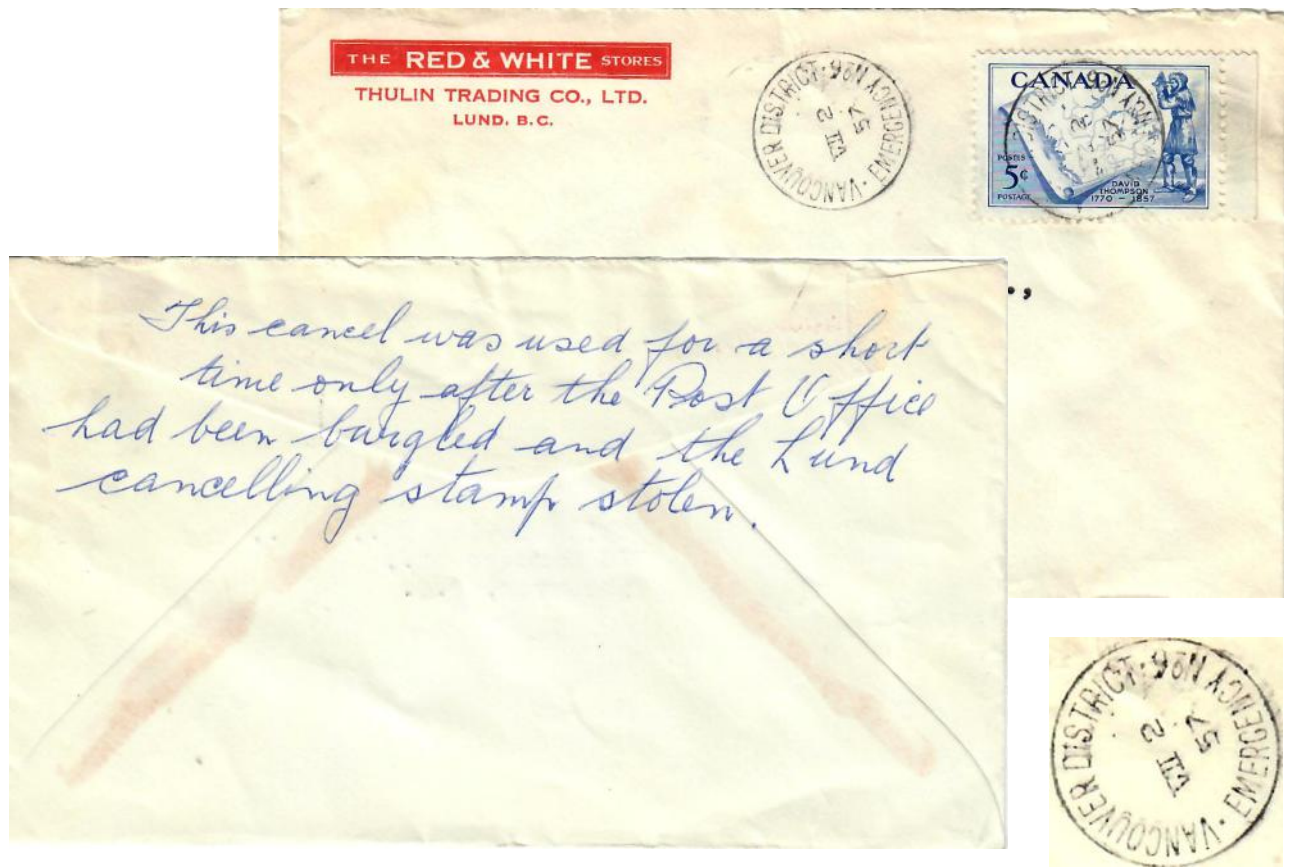 THE RED & WHITE STORES
THULIN TRADING CO., LTD.
LUND, B.C.
VANCOUVER DISTRICT · EMERGENCY Nº 6
2
VII
57
CANADA
POSTES
5¢
POSTAGE
DAVID
THOMPSON
1770 - 1857
This cancel was used for a short
time only after the Post Office
had been burgled and the Lund
cancelling stamp stolen.
VANCOUVER DISTRICT · EMERGENCY Nº 6
2
VII
57